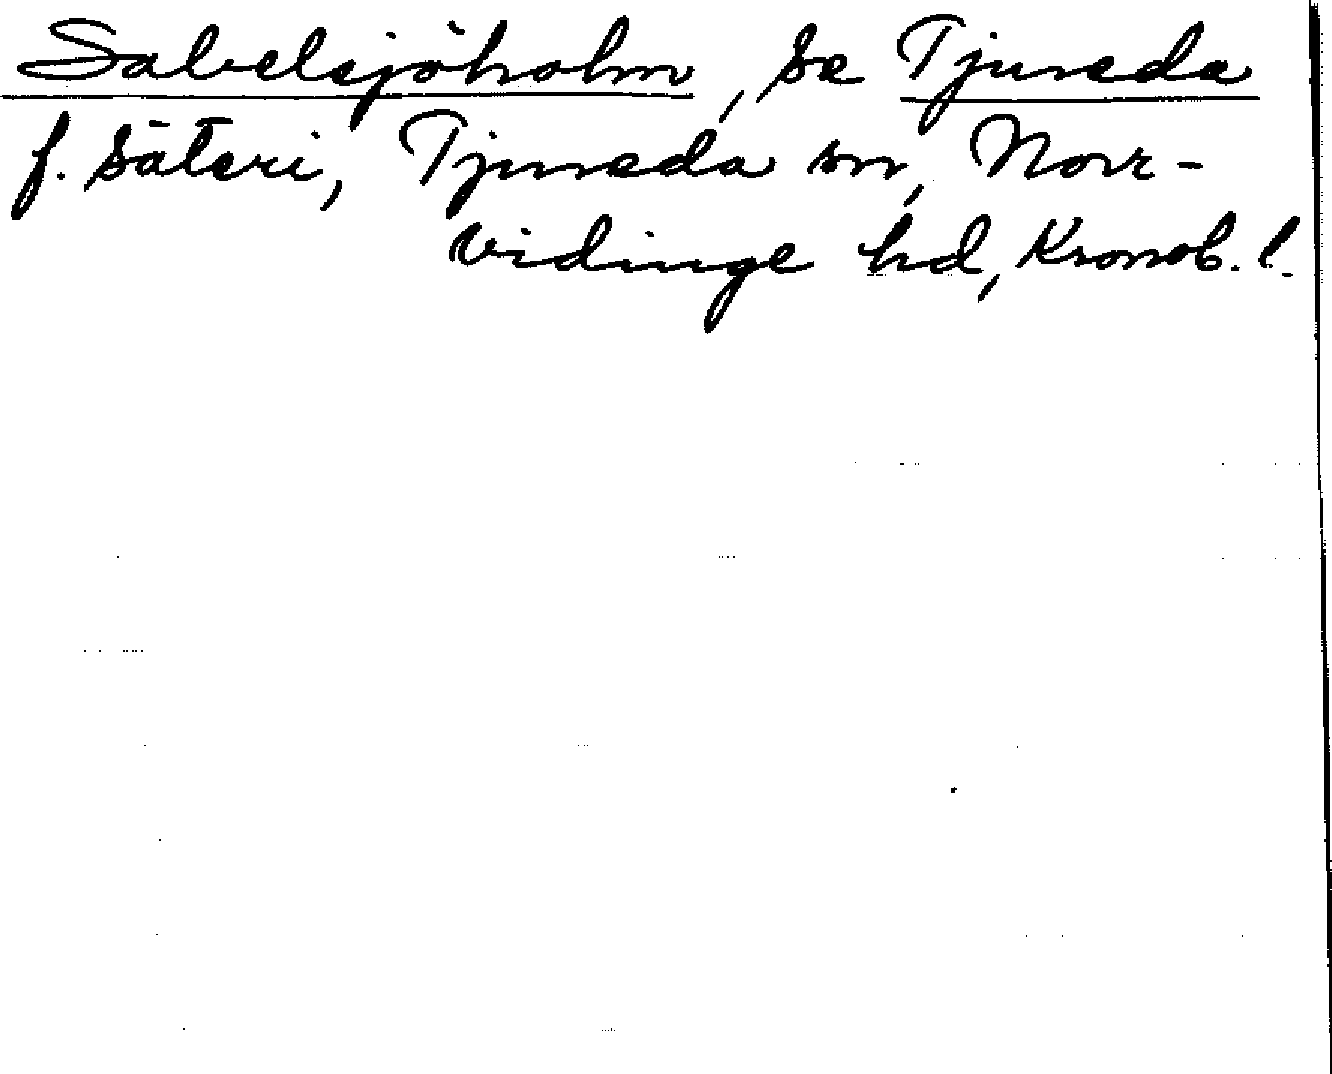 Sabelsjöholm, se Tjureda
f. säteri, Tjureda sn, Norr-
vidinge hd, Kronob. l.